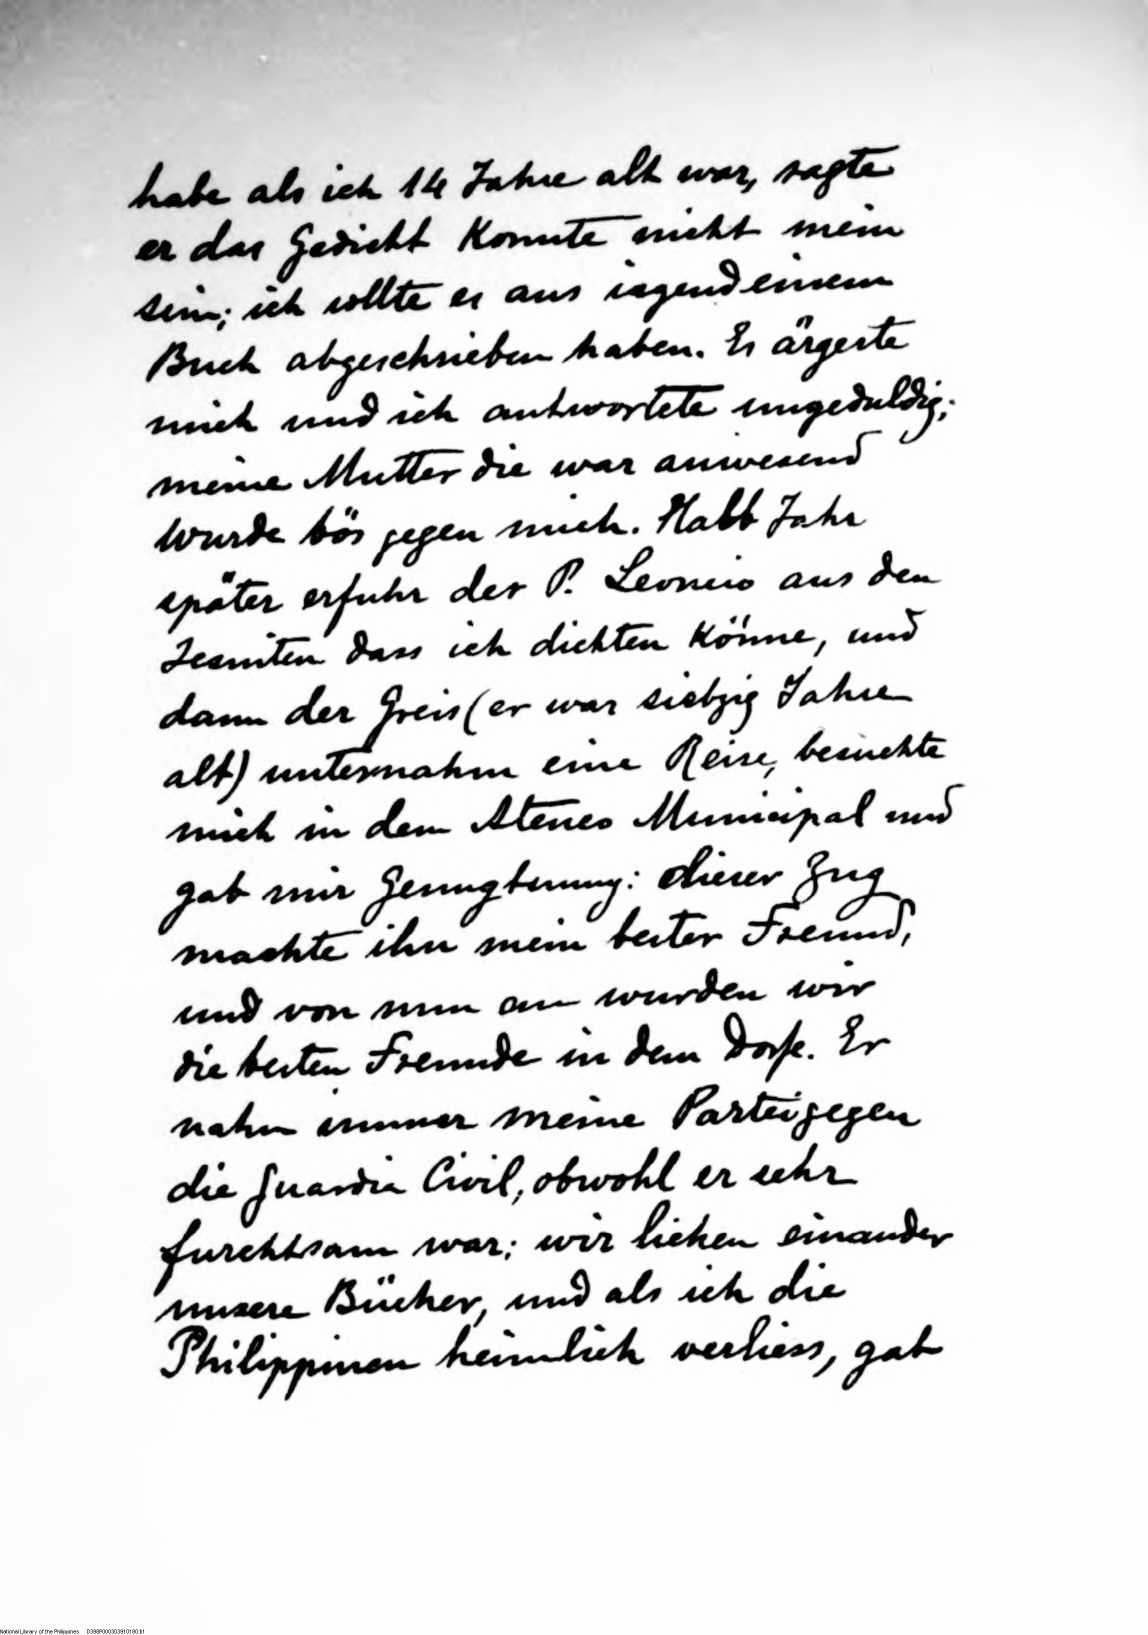 habe als ich 14 Jahre alt war, sagte
er das Gedicht konnte nicht mein
sein; ich sollte es aus irgend einem
Buch abgeschrieben haben. Es ärgerte
mich und ich antwortete ungeduldig;
meine Mutter die war anwesend
wurde bös gegen mich. Halb Jahr
später erfuhr der P. Leoncio aus den
Jesuiten dass ich dichten könne, und
dann der Greis (er war siebzig Jahre
alt) unternahm eine Reise, besuchte
mich in dem Ateneo Municipal und
gab mir Genugtuung: dieser Zug
machte ihn mein bester Freund,
und von nun an wurden wir
die besten Freunde in dem Dorfe. Er
nahm immer meine Partei gegen
die Guardia Civil, obwohl er sehr
furchtsam war; wir liehen einander
unsere Bücher, und als ich die
Philippinen heimlich verliess, gab
National Library of the Philippines